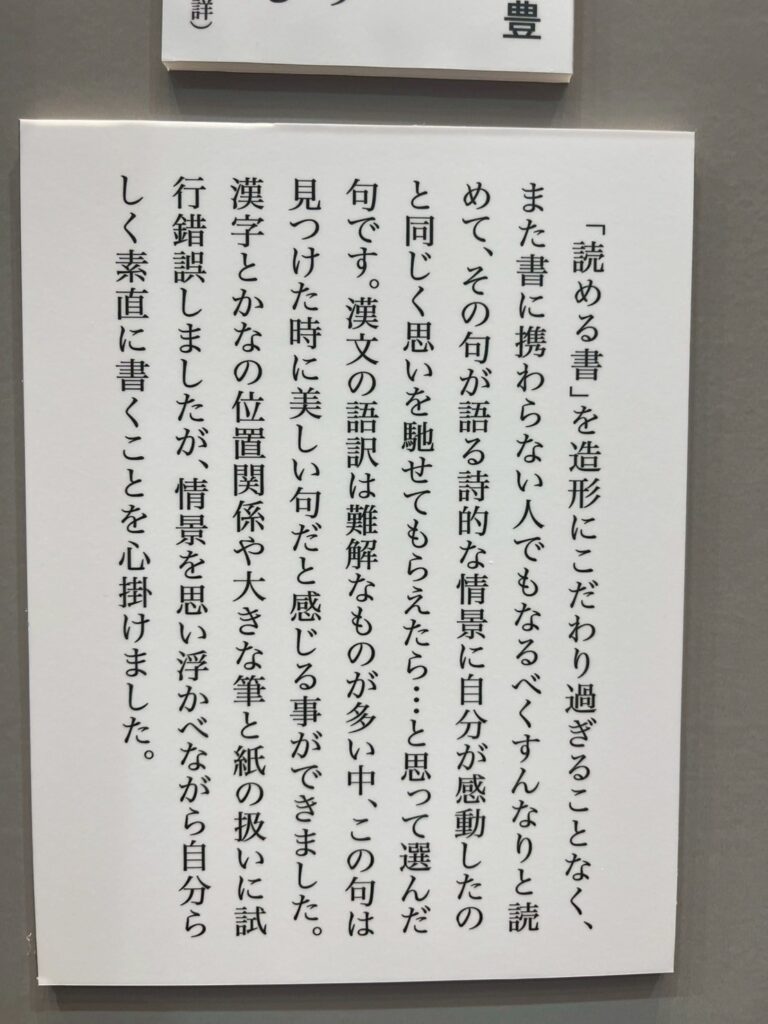 豊
詳）
「読める書」を造形にこだわり過ぎることなく、
また書に携わらない人でもなるべくすんなりと読
めて、その句が語る詩的な情景に自分が感動したの
と同じく思いを馳せてもらえたら…と思って選んだ
句です。漢文の語訳は難解なものが多い中、この句は
見つけた時に美しい句だと感じる事ができました。
漢字とかなの位置関係や大きな筆と紙の扱いに試
行錯誤しましたが、情景を思い浮かべながら自分ら
しく素直に書くことを心掛けました。